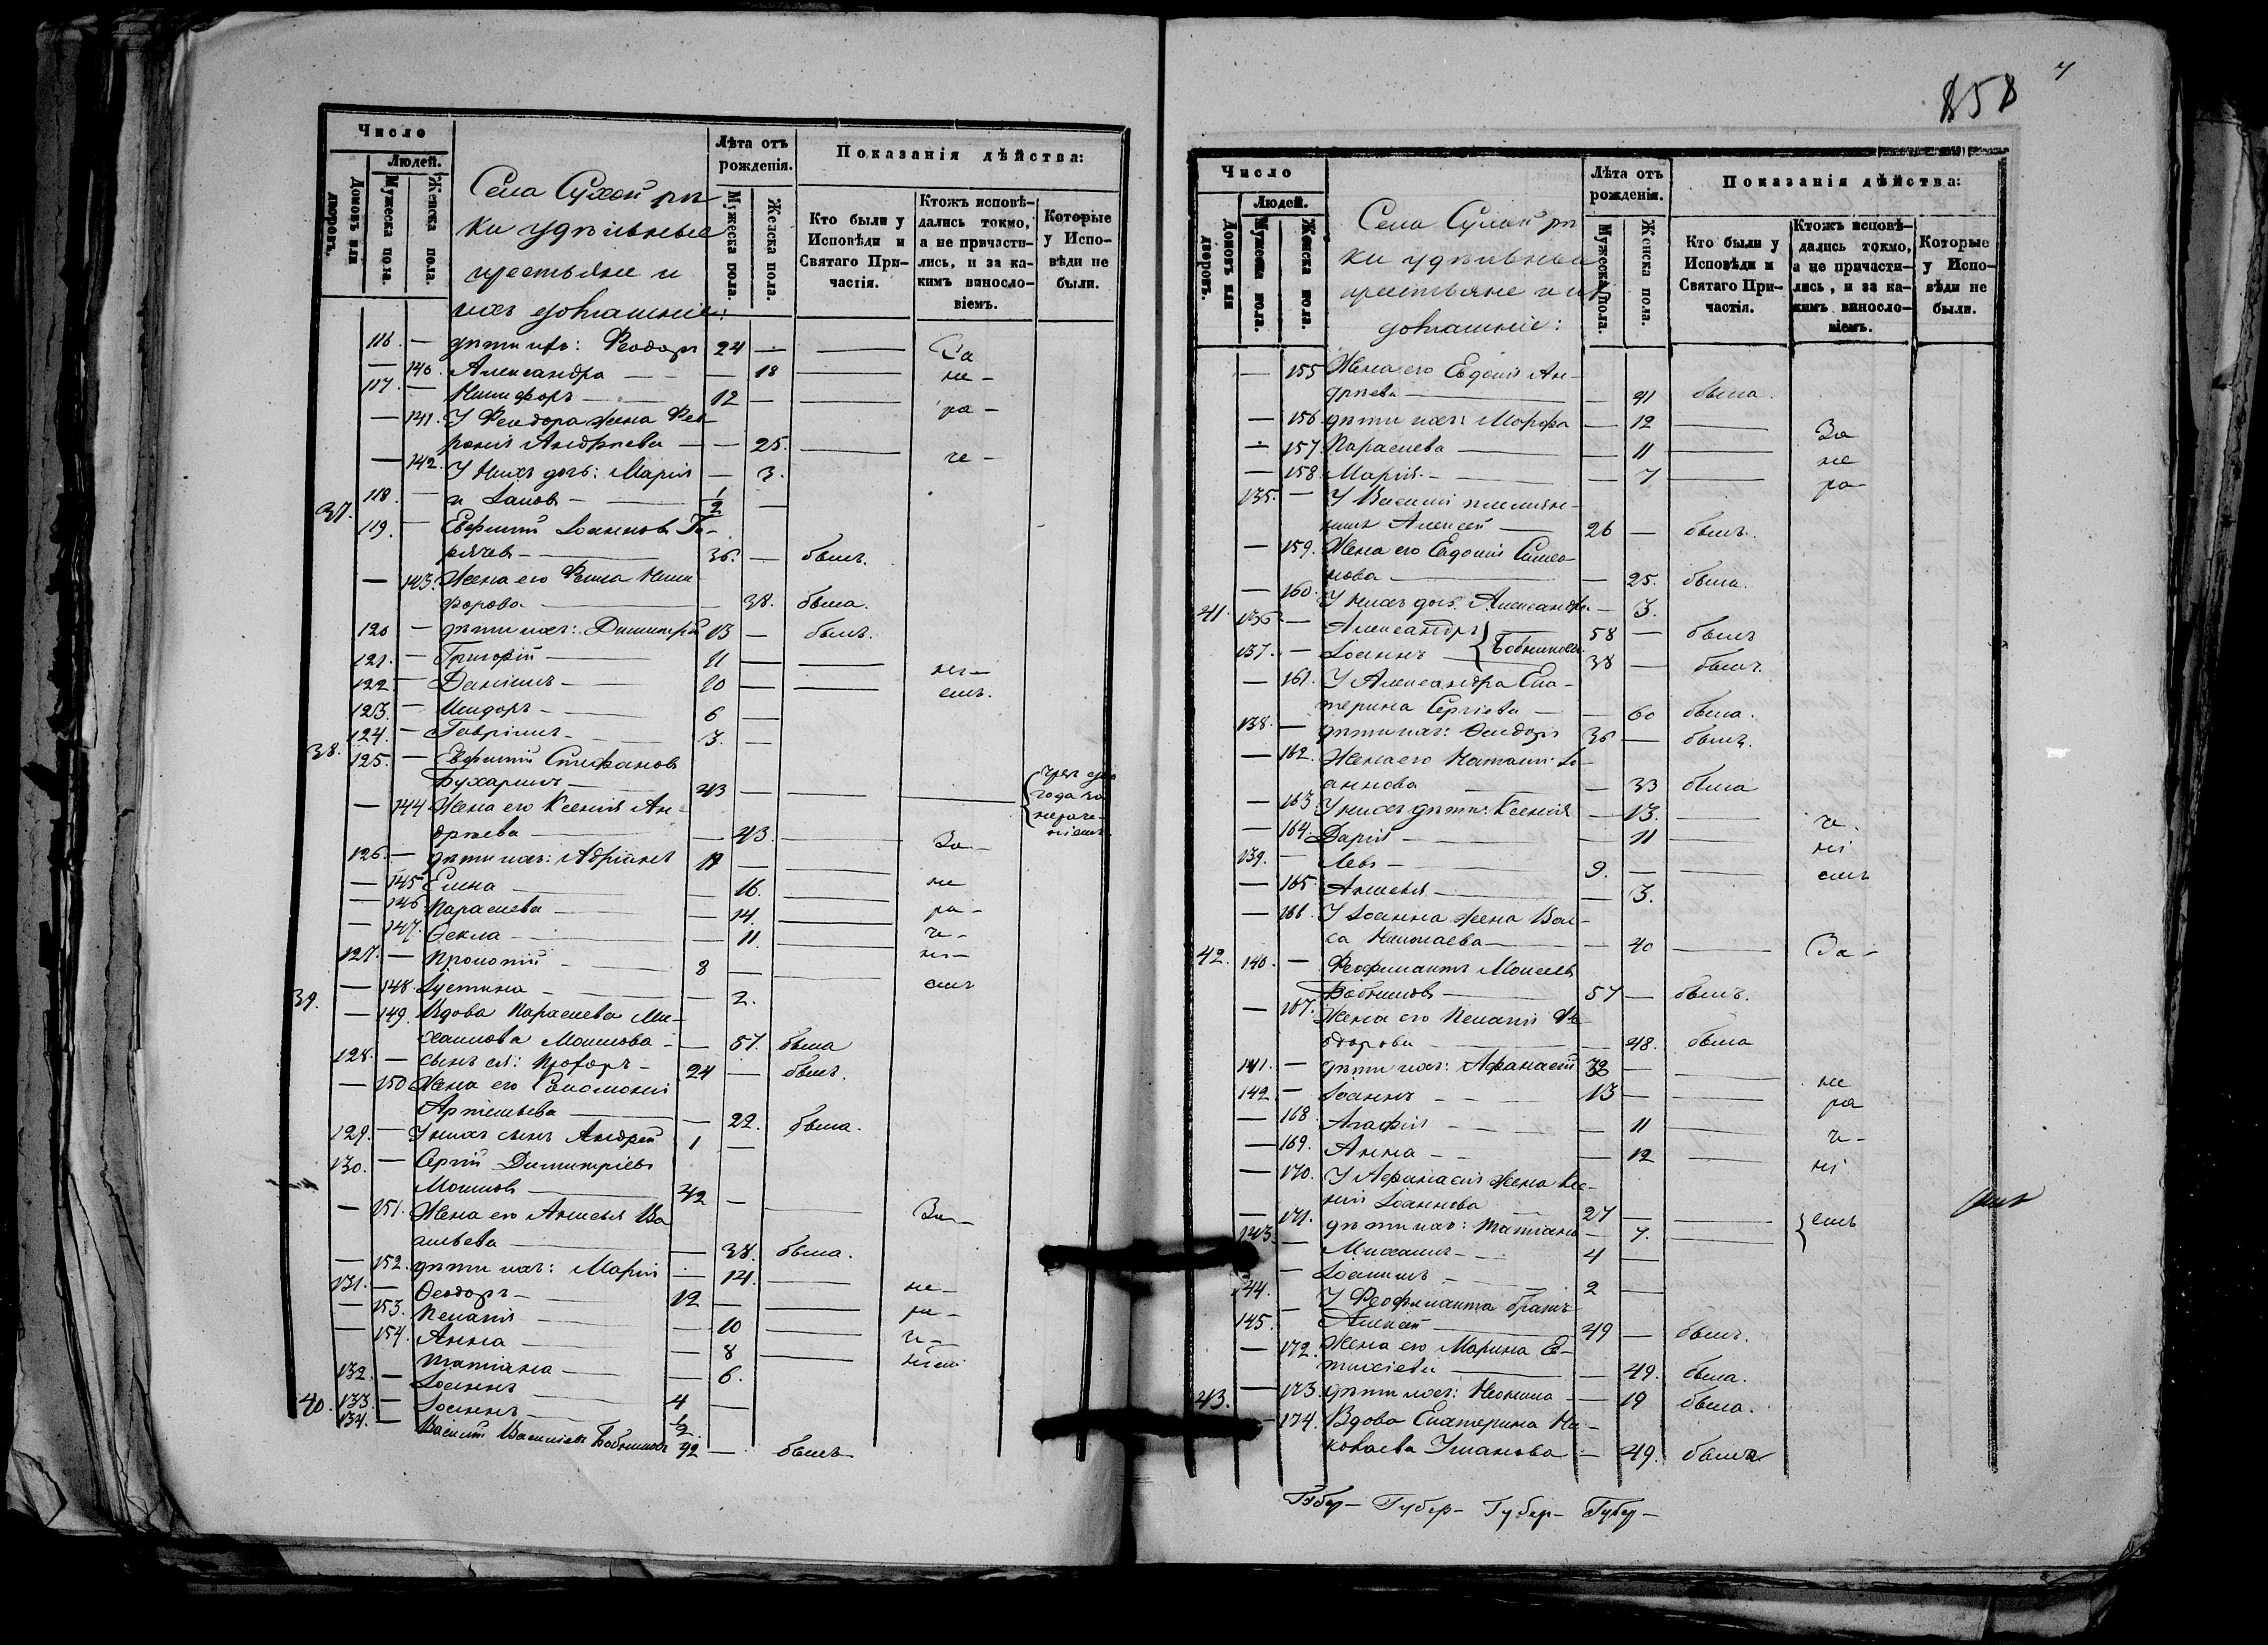 Число
Людей.
Домовъ или дворовъ.
Мужеска пола.
Женска пола.
Села Сухой рѣ
ки удѣльные
крестьяне и
ихъ домашніе:
Лѣта отъ рожденія.
Мужеска пола.
Женска пола.
Показанія дѣйства:
Кто были у Исповѣди и Святаго Причастія.
Ктожъ исповѣ-
дались токмо,
а не причасти-
лись, и за ка-
кимъ винosло-
віемъ.
Которые
у Испо-
вѣди не
были.
116. — дѣти ихъ: Феодоръ 24 — За
— 140. Александра — 18 не-
117. — Никифоръ 12 — ра-
— 141. У Феодора жена Фев-
ронія Андреева — 25. че-
— 142. У нихъ дочь: Марія — 3.
118. — и Іаковъ 1/2 —
37. 119. — Евфимій Іоанновъ Го-
рячев 36. — былъ.
— 143. Жена его Фекла Ники-
форова — 38. была.
120 — дѣти ихъ: Димитрій 13 — былъ.
121. — Григорій 11 — ні-
122. — Даніилъ 10 — емъ.
123. — Исидоръ 6 —
124. — Гавріилъ 3. —
38. 125. — Евфимій Стефановъ
Бухаринъ 43 —
года за
нераче-
ніемъ
— 144 Жена его Ксенія Ан-
дреева — 43. За-
126. — дѣти ихъ: Адріанъ 17 —
— 145 Елена — 16. не
— 146 Параскева — 14. ра-
— 147. Ѳекла — 11. че-
127. — Прокопій 8 — ні-
— 148. Іустина — 2. емъ
39. — 149. Вдова Параскева Ми-
хаилова Мошкова — 57. была
128. — сынъ ея: Прохоръ 24 — былъ.
— 150 Жена его Соломонія
Артемьева — 22. была.
129. — У нихъ сынъ Андрей 1 —
130. — Сергій Димитріевъ
Мошковъ 42 — За-
— 151. Жена его Анисья Ва
сильева — 38. была.
— 152. дѣти ихъ: Марія — 14. не-
131. — Ѳеодоръ 12 — ра-
— 153. Пелагія — 10 че-
— 154. Анна — 8 ніем
Татіана — 6.
132. — Іоаннъ 4 —
133. — Іоаннъ 1/2
40. 134. — Василій Василіевъ Бобылевъ 42 — былъ
858
7
Число
Людей.
Домовъ или дворовъ.
Мужеска пола.
Женска пола.
Села Сухой рѣ
ки удѣльные
крестьяне и их
домашніе:
Лѣта отъ рожденія.
Мужеска пола.
Женска пола.
Показанія дѣйства:
Кто были у
Исповѣди и
Святаго При-
частія.
Ктожъ исповѣ-
дались токмо,
а не причасти-
лись, и за ка-
кимъ винosло-
віемъ.
Которые
у Испо-
вѣди не
были.
— 155 Жена его Евдокія Ан-
дреева — 41 была.
— 156 дѣти ихъ: Марфа — 12 За
— 157 Параскева — 11 не
— 158. Марія — 7 ра-
135. — У Василія племян-
никъ Алексей 26 — былъ.
— 159. Жена его Евдокія Симо
нова — 25. была.
— 160. У нихъ дочь Александра — 3.
41. 136. — Александръ 58 — былъ
137. — Іоаннъ 38 — былъ.
— 161. У Александра Ека-
терина Сергіева — 60 была.
138. — дѣти ихъ: Ѳеодоръ 36 — былъ.
— 162. Жена его Наталія Іо-
аннова — 33 была
— 163 У нихъ дѣти: Ксенія — 13. че.
— 164. Дарія — 11 ні
139. — Левъ 9. — емъ
— 165. Анисья — 3.
— 166. У Іоанна жена Вас-
са Николаева — 40 За-
42. 140. — Феофилактъ Моисеевъ
57 — былъ.
— 167. Жена его Пелагія Фе
одорова — 48. была
141. — дѣти ихъ: Афанасій —
142. — Іоаннъ 13 — не
— 168 Агафія — 11 ра
— 169. Анна — 12 че-
— 170. У Афанасія жена Ксе-
нія Іоаннова 27 — ні
— 171. дѣти ихъ: Татіана — 7. емъ
143. — Михаилъ 4 —
144. — Іоакимъ 2 —
У Феофилакта братъ
145. Алексей 49 — былъ.
— 172. Жена его Марина Е-
втихіева — 49. была.
— 173. дѣти ихъ: Неонила — 19 была.
43. — 174. Вдова Екатерина Ия-
ковлева Ушакова — 49. была
Губер- Губер- Губер- Губер-